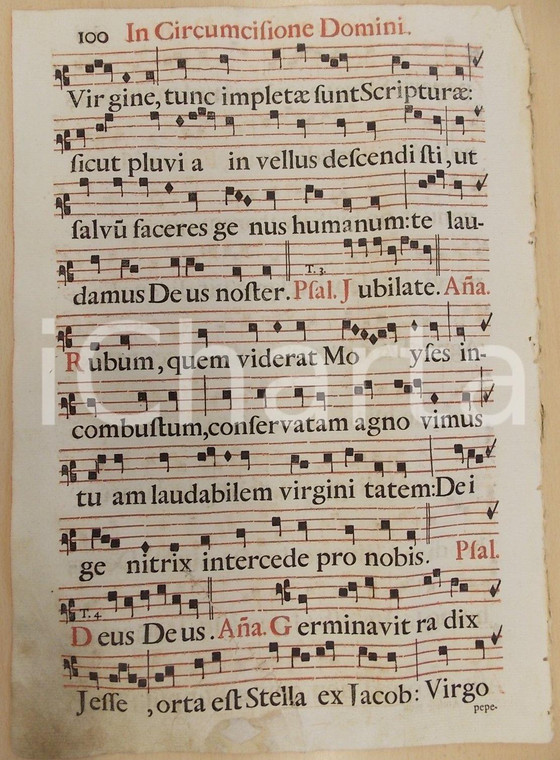 100 In Circumciſione Domini.
Vir gine, tunc impletæ ſunt Scripturæ:
ſicut pluvi a in vellus deſcendi ſti, ut
ſalvū faceres ge nus humanum: te lau-
T. 3.
damus De us noſter. Pſal. J ubilate. Aña.
R ubum, quem viderat Mo yſes in-
combuſtum, conſervatam agno vimus
tu am laudabilem virgini tatem: De i
ge nitrix intercede pro nobis. Pſal.
T. 4
D eus De us. Aña. G erminavit ra dix
Jeſſe , orta eſt Stella ex Jacob: Virgo
pepe-
iCharta